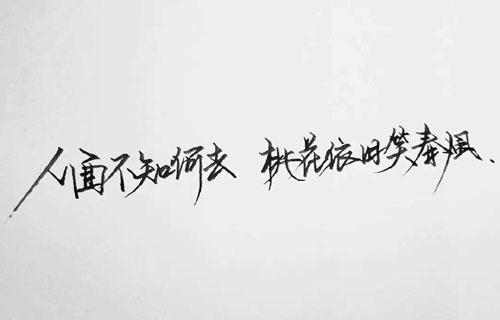 人面不知何去 桃花依旧笑春风.